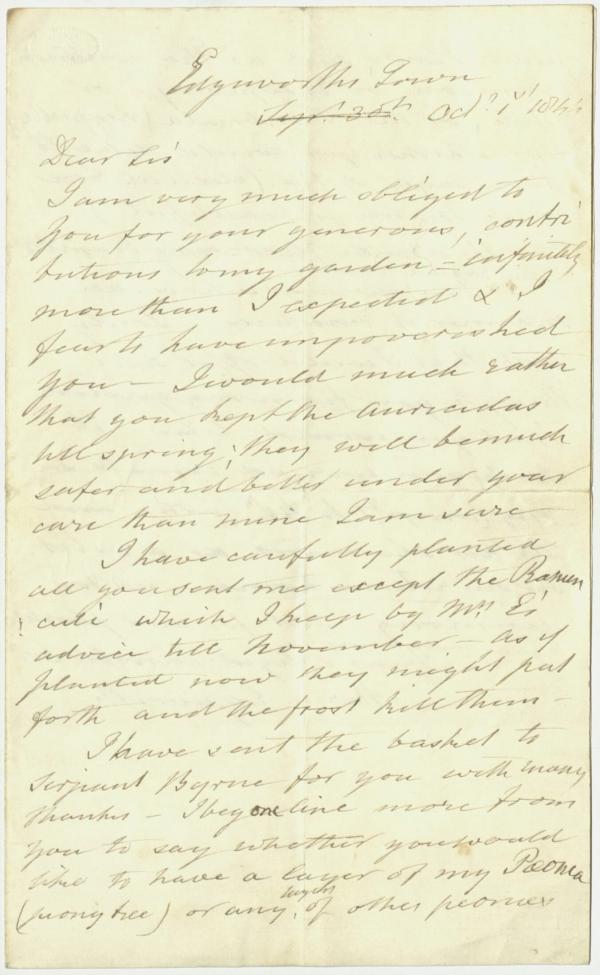 Edgeworth's Town
Sept. 30th. Oct. 1st 184
Dear Sir
I am very much obliged to
you for your generous, contri
butions to my garden – infinitely
more than I expected & I
fear to have impoverished
you – I would much rather
that you kept the auriculas
till spring; they will be much
safer and better under your
care than mine I am sure
I have carefully planted
all you sent me except the Ranun
culi which I keep by Mrs E's
advice till November – as if
planted now they might put
forth and the frost kill them –
I have sent the basket to
Serjeant Byrne for you with many
thanks – I beg one line more from
you to say whether you would
like to have a layer of my Pæonia
(peony tree) or any layers of other peonies